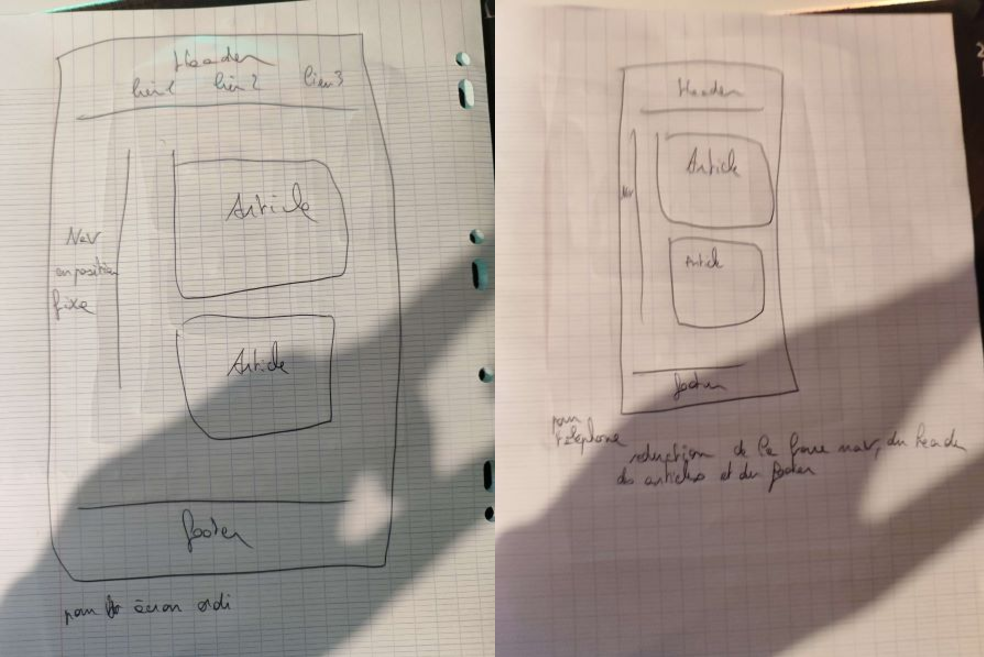 Header
lien1 lien2 lien3
Nav
en position
fixe
Article
Article
footer
pour écran ordi
Header
Nav
Article
Article
footer
pour
téléphone
reduction de la nav, du header
des articles et du footer